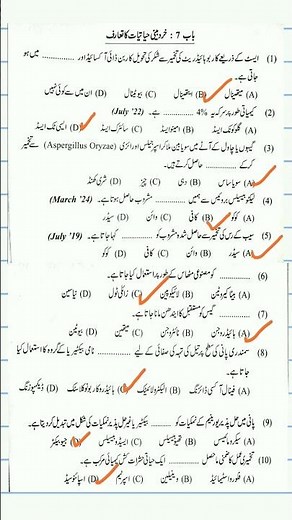 باب 7 : خردبینی حیاتیات کا تعارف
(1) ایسٹ کے ذریعے کاربوہائیڈریٹ کی تخمیر سے شکر کی تحویل کاربن ڈائی آکسائیڈ اور ............ میں ہو
جاتی ہے۔
(A) میتھینال (B) ایتھینال (C) بیوٹینال (D) ان میں سے کوئی نہیں
(2) کیمیائی طور پر سرکہ یہ 4% ............ ہے۔ (July '22)
(A) گلوکونک ایسڈ (B) امینو ایسڈ (C) سائٹرک ایسڈ (D) ایسی ٹک ایسڈ
(3) گیہوں یا چاول کے آٹے میں سویابین ملا کر اسپرجیلس اورائزی (Aspergillus Oryzae) سے تخمیر
کر کے ............ حاصل کرتے ہیں۔
(A) سویا ساس (B) دہی (C) چیز (D) شری کھنڈ
(4) لیکٹوبیسلس بروئیس سے ہمیں ............ مشروب حاصل ہوتا ہے۔ (March '24)
(A) کوکو (B) کافی (C) وائن (D) سیڈر
(5) سیب کے رس کی تخمیر سے حاصل شدہ مشروب کو ............ کہا جاتا ہے۔ (July '19)
(A) سیڈر (B) وائن (C) کافی (D) کوکو
(6) ............ کو مصنوعی مٹھاس کے طور پر استعمال کیا جاتا ہے۔
(A) بیٹا کیروٹین (B) لائیکوپین (C) زائلی ٹول (D) نیاسین
(7) ............ گیس کو مستقبل کا ایندھن مانا جاتا ہے۔
(A) ہائیڈروجن (B) نائٹروجن (C) میتھین (D) بیوٹین
(8) سمندری پانی کی سطح پر تیل کی تہہ کی صفائی کے لیے ............ نامی بیکٹیریا کے گروہ کا استعمال کیا
جاتا ہے۔
(A) فینال آکسی ڈائزنگ (B) الیکٹرولائیٹک (C) ہائیڈروکاربونوکلاسٹک (D) ڈیکمپوزنگ
(9) پانی میں حل پذیر یورینیم کے نمکیات کو ............ بیکٹیریا غیر حل پذیر نمکیات کی شکل میں تبدیل کر دیتا ہے۔
(A) سیکرومائیسس (B) تھیوبیسیلس (C) ایسیڈوبیسیلس (D) جیوبیکٹر
(10) تخمیری عمل کا ضمنی ماحصل ............ ایک حیاتی حشرات کش کیمیائی مرکب ہے۔
(A) فلورواسیٹمائیڈ (B) وینیلین (C) اسپرٹیم (D) اسپائنوسیڈ